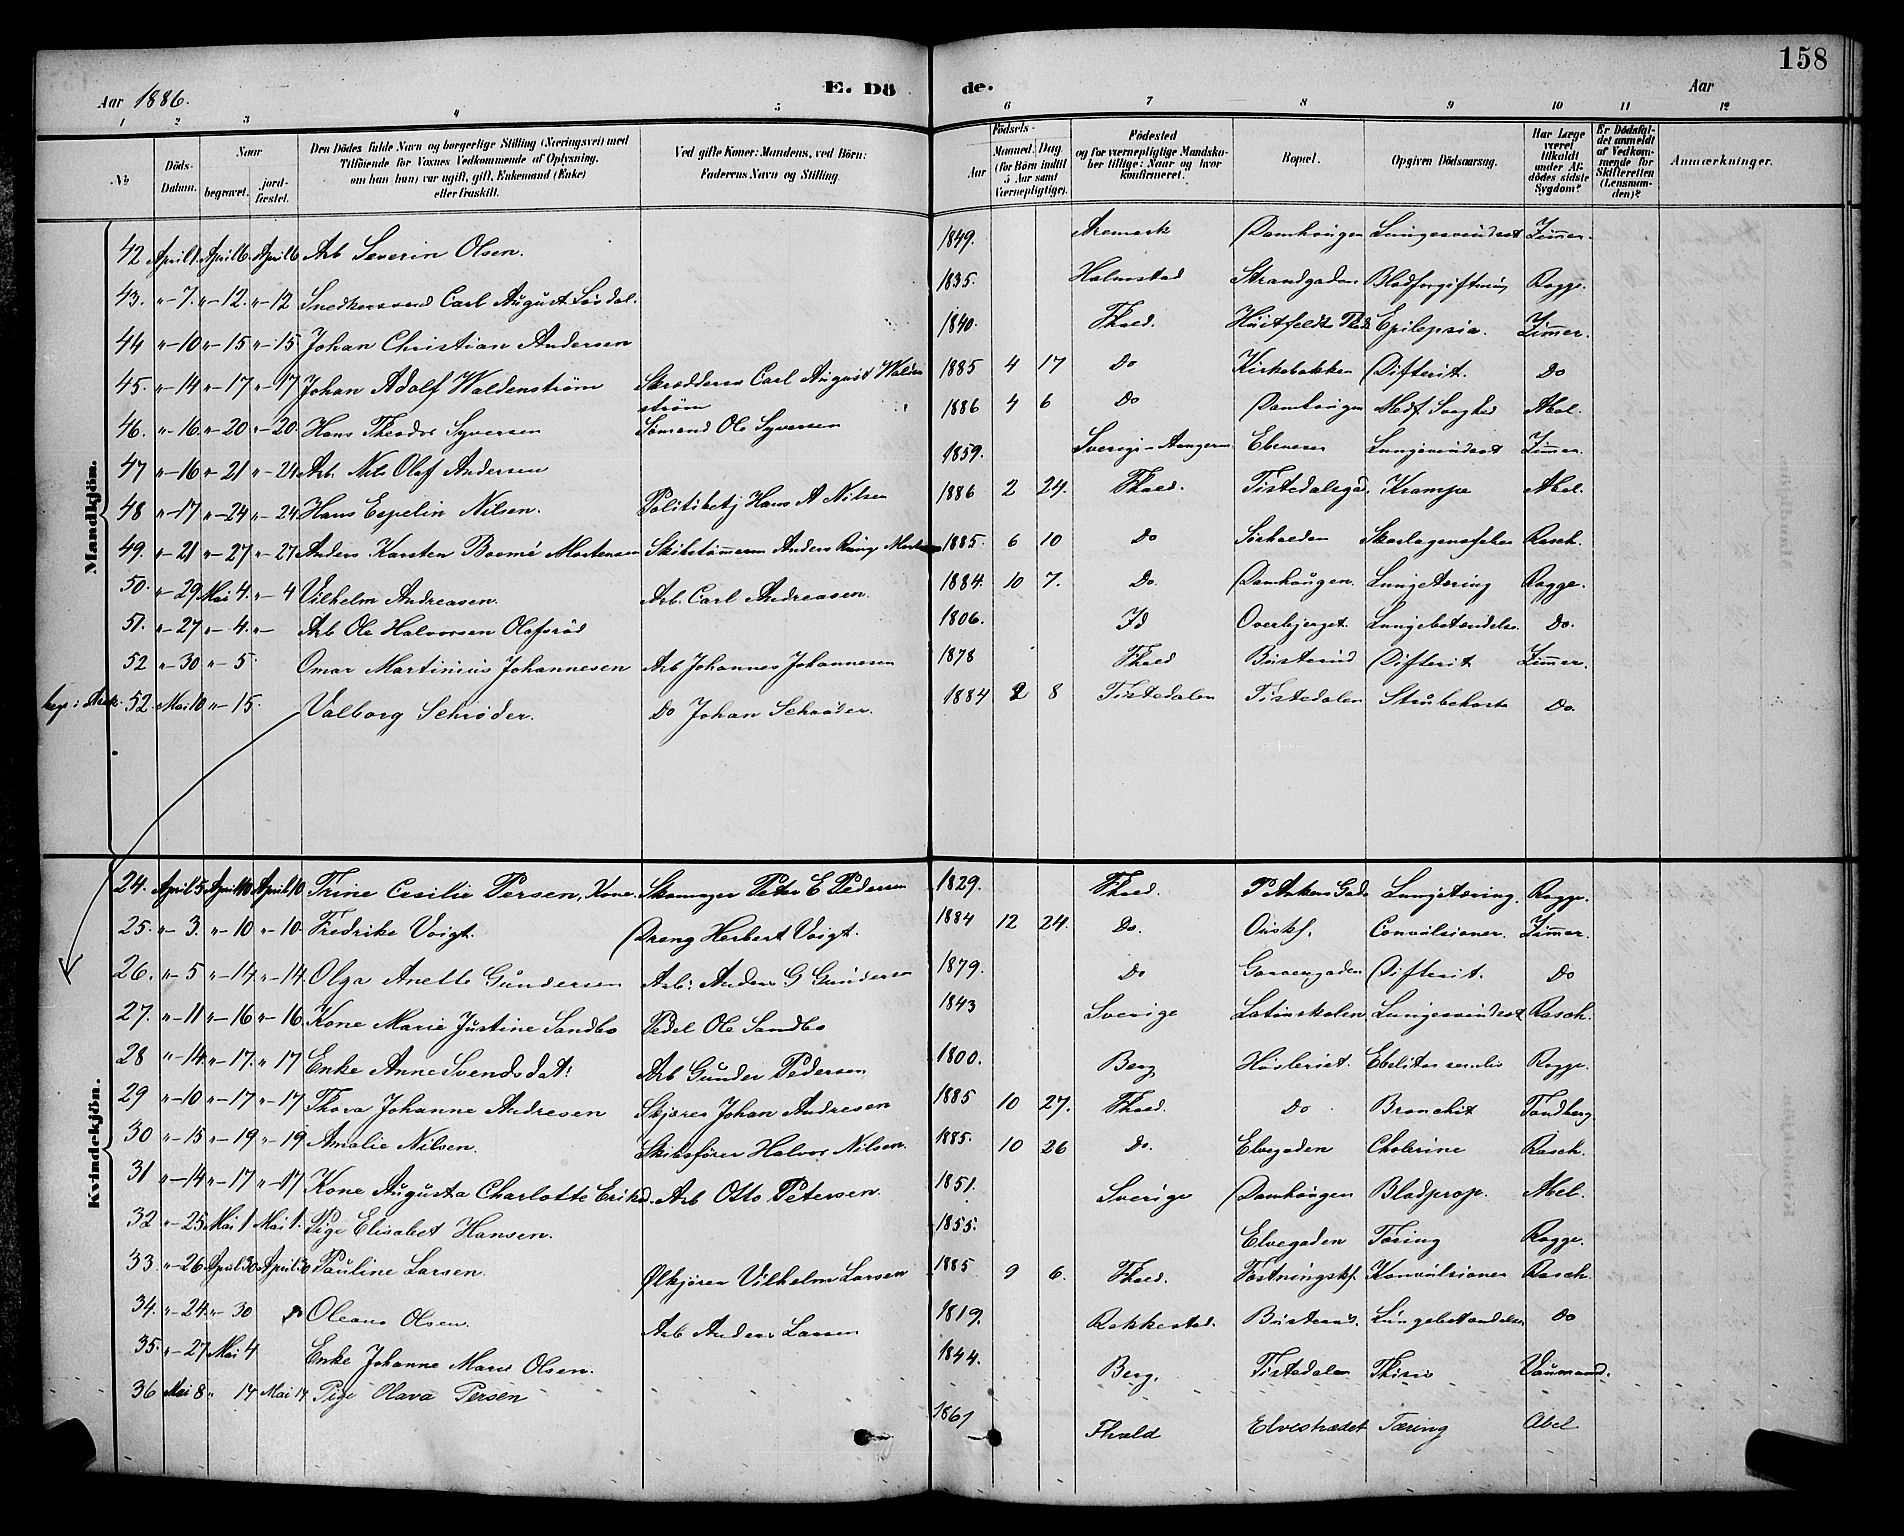 158
Aar 1886.
E. Dö
de.
Aar
1 2 3 4 5 6 7 8 9 10 11 12
No
Döds-Datum.
Naar
begravet.
jord-fæstet.
Den Dödes fulde Navn og borgerlige Stilling (Næringsvei) med
Tilföiende for Voxnes Vedkommende af Oplysning,
om han (hun) var ugift, gift, Enkemand (Enke)
eller fraskilt.
Ved gifte Koner: Mandens, ved Börn:
Faderens Navn og Stilling
Födsels-
Aar
Maaned Dag
(for Börn indtil
5 Aar samt
Værnepligtige).
Födested
og for værnepligtige Mandska-
ber tillige: Naar og hvor
konfirmeret.
Bopæl.
Opgiven Dödsaarsag.
Har Læge
været
tilkaldt
under Af-
dödes sidste
Sygdom?
Er Dödsfal-
det anmeldt
af Vedkom-
mende for
Skifteretten
(Lensman-
den)?
Anmærkninger.
Mandkjön.
42 April 1 April 6 April 6 Arb Severin Olsen. 1849. Aremark Damhaugen Lungesvindsot Zimmer.
43. "-7. "-12. "-12 Snedkersvend Carl August Lösdal. 1835. Halmstad Strandgaden Blodforgiftning Rogge.
44 "-10 "-15 "-15 Johan Christian Andersen 1840. Fhald. Huitfeldts Plads Epilepsia. Zimmer.
45. "-14 "-17 "-17 Johan Adolf Waldenstrøm Skrædderen Carl August Walden
strøm 1885 4 17 Do Kirkebakken Difterit. Do
46. "-16 "-20 "-20. Hans Theodor Syversen Sømand Ole Syversen 1886 4 6 Do Damhaugen Medf Svaghed Abel.
47 "-16 "-21 "-21 Arb. Nils Olaf Andersen 1859. Sverige Ebeneser Lungesvindsot Zimmer.
48 "-17 "-24 "-24 Hans Espelin Nilsen. Politibetj Hans A Nilsen 1886 2 24. Fhald. Tistedalsgd. Krampe Abel.
49. "-21 "-27 "-27 Anders Karsten Mortensen Skibstømmerm Anders Ring 1885. 6 10 Do Sørhalden Skarlagensfeber Rasch.
50. "-29 Mai 4. "-4 Vilhelm Andreasen. Arb. Carl Andreasen. 1884. 10 7. Do. Damhaugen. Lungetæring Rogge.
51. "-27 "-4. "- Arb Ole Halvorsen Olafsrød 1806. Id Overbjerget. Lungebetændelse. Do.
52 "-30 "-5. Omar Martinius Johannesen Arb Johannes Johannesen 1878 Fhald Busterud Difterit Zimmer.
52. Mai 10 "-15. Valborg Schrøder. Do Johan Schrøder. 1884 2 8 Tistedalen Tistedalen Strubehoste Do.
Kvindekjön.
24. April 5 April 10 April 10. Trine Cecilie Persen, Kone Skomager Peter E Pedersen 1829. Fhald. P Ankers Gade Lungetæring. Rogge.
25. "-3. "-10 "-10. Fredrike Voigt. Dreng Herbert Voigt. 1884 12 24. Do. Convulsioner. Zimmer.
26. "-5 "-14 "-14. Olga Anette Gundersen Arb: Anders G Gundersen 1879. Do Difterit. Do
27. "-11 "-16 "-16 Kone Marie Justine Sandbo Pedel Ole Sandbo 1843 Sverige Latinskolen Lungesvindsot Rasch.
28 "-14 "-17. "17 Enke Anne Svendsdat: Arb Gunder Pedersen 1800. Berg Rogge.
29 "-10 "-17 "-17 Thora Johanne Andresen Johan Andresen 1885 10 27. Fhald. Do Bronchit Tandberg
30 "-15 "-19 "-19 Amalie Nilsen. Skibsfører Halvor Nilsen. 1885. 10 26 Do. Elvegaden Cholerine Rasch.
31 "-14 "-17 "-17 Kone Augusta Charlotte Eriksd. Arb Otto Petersen. 1851. Sverige Damhaugen Blodprop. Abel.
32 "-25 Mai 1 Mai 1. Pige Elisabet Hansen. 1855. Elvegaden Tæring Rogge.
33. "-26 April 30 April 30 Pauline Larsen. Ølkjører Vilhelm Larsen 1885 9 6. Fhald. Fæstningskf. Konvulsioner Rasch.
34. "-24. "-30 Oleana Olsen. Arb Anders Larsen 1819. Rakkestad. Busterud. Lungebetændelse Do
35. "-27 Mai 4 Enke Johanne Marie Olsen. 1844. Berg. Tistedalen Vaumund.
36 Mai 8 " 14 Mai 14 Pige Olava Persen 1861 Fhald Elvestrædet Tæring Abel